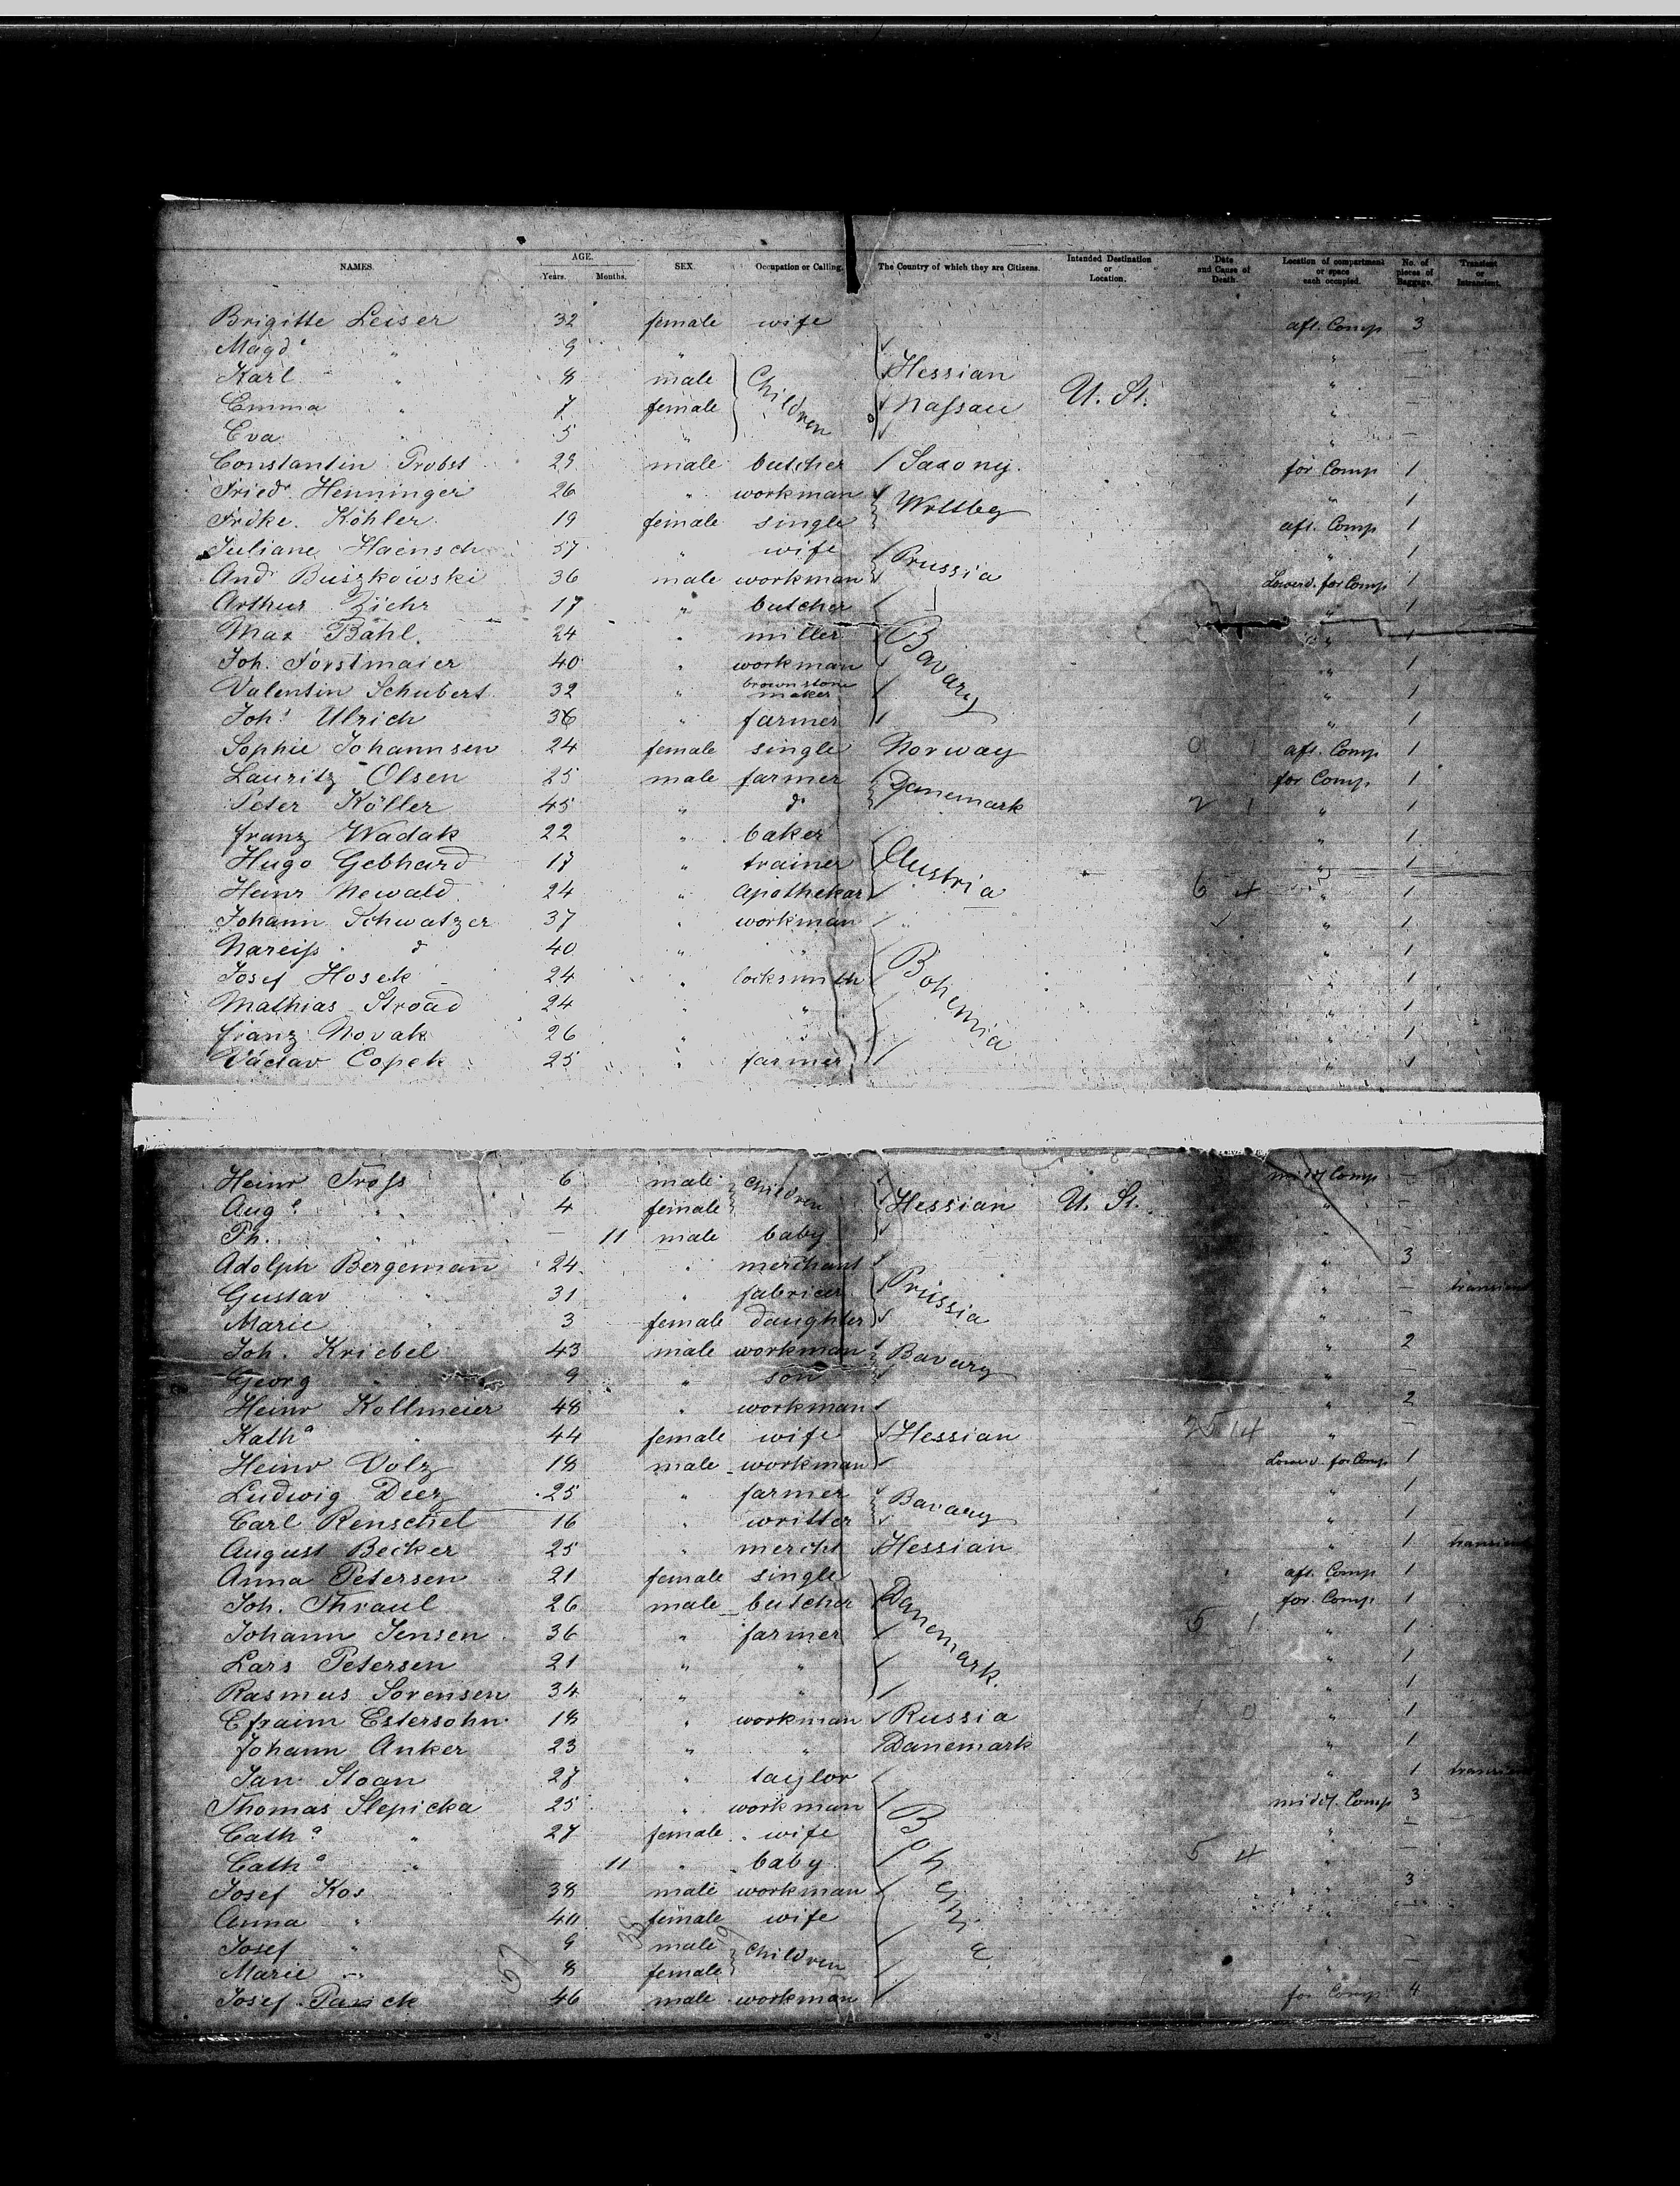 NAMES. AGE. Years. Months. SEX. Occupation or Calling. The Country of which they are Citizens. Intended Destination or Location. Date and Cause of Death. Location of compartment or space each occupied. No. of pieces of Baggage. Transient or Intransient.
Brigitte Leiser 32 female wife aft. Comp 3
Magda " 9 " " —
Karl " 8 male Children Hessian " —
Emma " 7 female Nassau U. St. " —
Eva " 5 " " —
Constantin Probst 29 male butcher Saxony. for Comp 1
Friedr. Henninger 26 " workman Wrttbg " 1
Frdke. Köhler 19 female single aft. Comp 1
Juliane Haensch 57 " wife Prussia " 1
And. Buszkowski 36 male workman Lowerd. for Comp 1
Arthur Zichr 17 " butcher " 1
Max Bahl. 24 " miller Bavary " 1
Joh. Forstmaier 40 " workman " 1
Valentin Schubert 32 " brownstone maker " 1
Joh. Ulrich 36 " farmer " 1
Sophie Johannsen 24 female single Norway 0 1 aft. Comp 1
Lauritz Olsen 25 male farmer Danemark for Comp 1
Peter Köller 45 " do 2 1 " 1
Franz Wadak 22 " baker " 1
Hugo Gebhard 17 " trainer Austria " 1
Heinr Newald 24 " Apothekar 6 4 " 1
Johann Schwatzer 37 " workman " 1
Nareiss do 40 " " " 1
Josef Hosek 24 " locksmith Bohemia " 1
Mathias Stroad 24 " " " 1
Franz Novak 26 " " " 1
Václav Copek 25 " farmer " 1
Heinr Tross 6 male children midd Comp —
Auge " 4 female Hessian U. St. " —
Ph. " — 11 male baby " —
Adolph Bergemann 24 " merchant " 3
Gustav " 31 " fabrican Prussia " — transient
Marie " 3 female daughter " —
Joh. Kriebel 43 male workman Bavary " 2
Georg " 9 " son " —
Heinr Kollmeier 48 " workman " 2
Katha " 44 female wife Hessian 25 14 " —
Heinr Volz 18 male workman Lowerd. for Comp 1
Ludwig Deez 25 " farmer Bavary " 1
Carl Renschel 16 " writter " 1
August Becker 25 " mercht Hessian " 1 transient
Anna Petersen 21 female single aft. Comp 1
Joh. Thraul 26 male butcher Danemark. for. Comp 1
Johann Jensen 36 " farmer 5 1 " 1
Lars Petersen 21 " " " 1
Rasmus Sorensen 34 " " " 1
Efraim Estersohn 18 " workman Russia 1 0 " 1
Johann Anker 23 " " Danemark " 1
Jan Stoan 27 " taylor " 1 transient
Thomas Slepicka 25 " workman Bohemia midd. Comp 3
Catha " 27 female wife " —
Catha " 11 " baby 5 4 " —
Josef Kos 38 male workman " 3
Anna " 40 female wife " —
Josef " 9 male children " —
Marie " 8 female " —
Josef 46 male workman for Comp 4
57 38 19